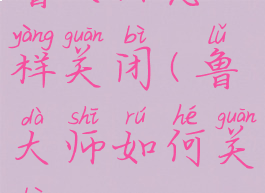 yàng guān bì lǔ
样关闭(鲁
dà shī rú hé guān
大师如何关